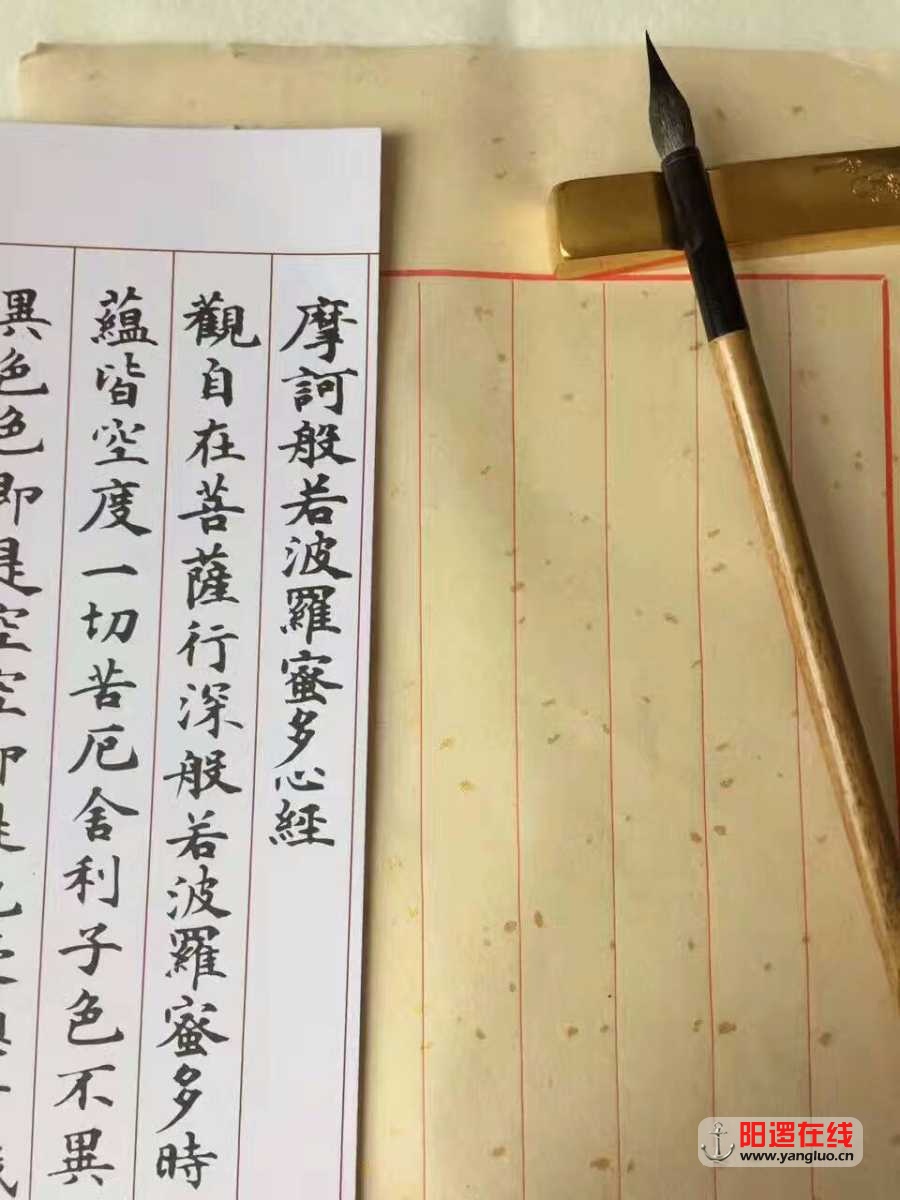 摩訶般若波羅蜜多心經
觀自在菩薩行深般若波羅蜜多時
蘊皆空度一切苦厄舍利子色不異
異色色即是空空即是色
阳逻在线
www.yangluo.cn